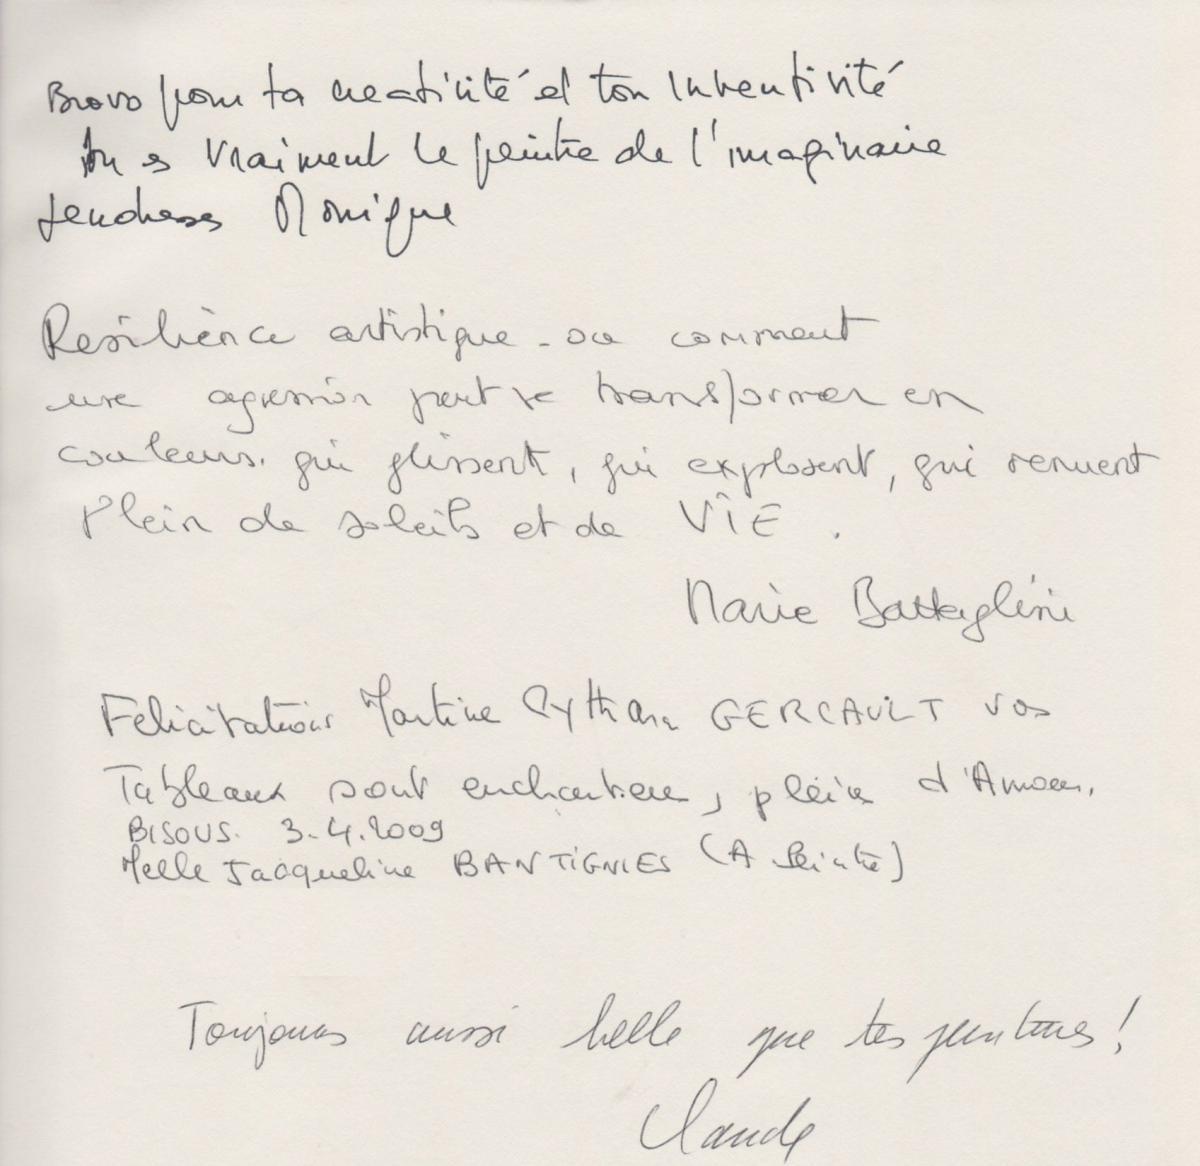 Bravo pour ta creativité et ton inventivité
tu es vraiment le peintre de l'imaginaire
tendresses Monique
Resiliènce artistique - ou comment
une agression peut se transformer en
couleurs. qui glissent, qui explosent, qui remuent
Plein de soleils et de VÎE.
Marie Battaglini
Felicitations Martine GERCAULT vos
Tableaux sont enchanteurs, pleins d'Amour.
BISOUS. 3.4.2009
Melle Jacqueline BANTIGNIES (A Peintre)
Toujours aussi belle que tes peintures!
Claude